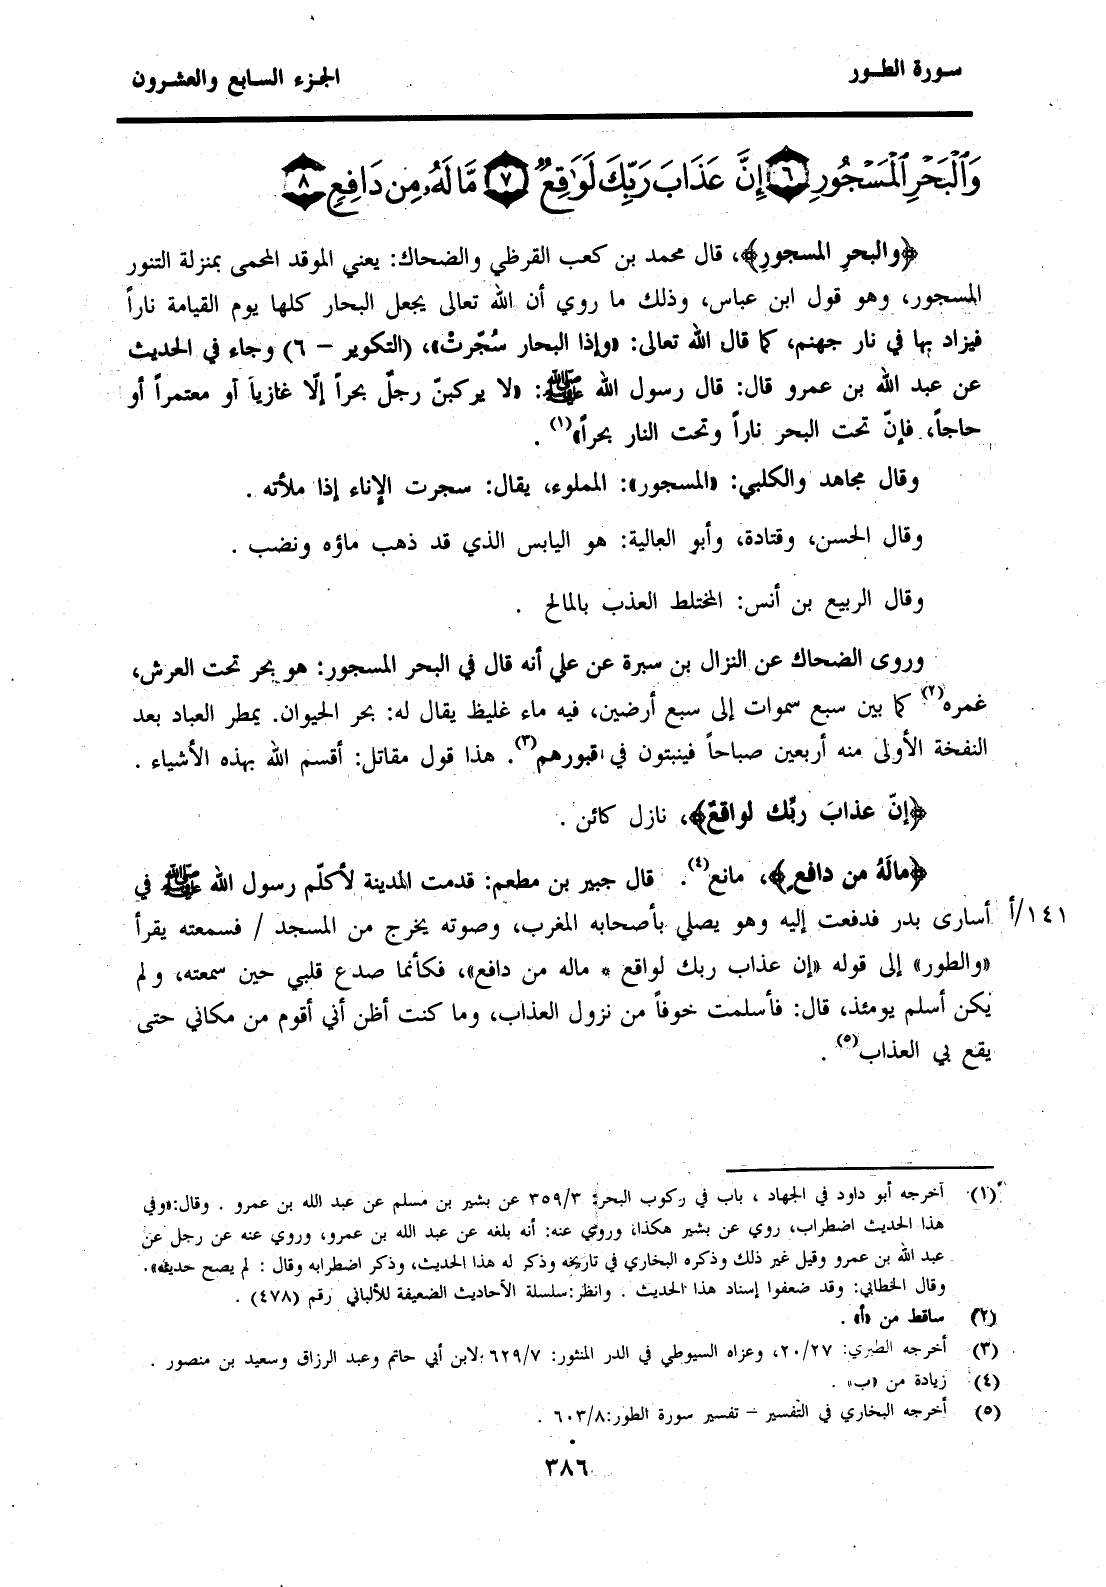 سورة الطور
الجزء السابع والعشرون
وَٱلْبَحْرِ ٱلْمَسْجُورِ ٦ إِنَّ عَذَابَ رَبِّكَ لَوَٰقِعٌ ٧ مَّا لَهُۥ مِن دَافِعٍ ٨
﴿والبحرِ المسجورِ﴾، قال محمد بن كعب القرظي والضحاك: يعني الموقد المحمى بمنزلة التنور
المسجور، وهو قول ابن عباس، وذلك ما روي أن الله تعالى يجعل البحار كلها يوم القيامة ناراً
فيزاد بها في نار جهنم، كما قال الله تعالى: «وإذا البحار سُجّرتْ»، (التكوير – ٦) وجاء في الحديث
عن عبد الله بن عمرو قال: قال رسول الله ﷺ: «لا يركبنّ رجلٌ بحراً إلّا غازياً أو معتمراً أو
حاجاً، فإنّ تحت البحر ناراً وتحت النار بحراً»(١) .
وقال مجاهد والكلبي: «المسجور»: المملوء، يقال: سجرت الإناء إذا ملأته .
وقال الحسن، وقتادة، وأبو العالية: هو اليابس الذي قد ذهب ماؤه ونضب .
وقال الربيع بن أنس: المختلط العذب بالمالح .
وروى الضحاك عن النزال بن سبرة عن علي أنه قال في البحر المسجور: هو بحر تحت العرش،
غمره(٢) كما بين سبع سموات إلى سبع أرضين، فيه ماء غليظ يقال له: بحر الحيوان. يمطر العباد بعد
النفخة الأولى منه أربعين صباحاً فينبتون في قبورهم(٣). هذا قول مقاتل: أقسم الله بهذه الأشياء .
﴿إنّ عذابَ ربِّك لواقعٌ﴾، نازل كائن .
﴿مالَهُ من دافعٍ﴾، مانع(٤). قال جبير بن مطعم: قدمت المدينة لأكلّم رسول الله ﷺ في
١٤١/أ أسارى بدر فدفعت إليه وهو يصلي بأصحابه المغرب، وصوته يخرج من المسجد / فسمعته يقرأ
«والطور» إلى قوله «إن عذاب ربك لواقع * ماله من دافع»، فكأنما صدع قلبي حين سمعته، ولم
يكن أسلم يومئذ، قال: فأسلمت خوفاً من نزول العذاب، وما كنت أظن أني أقوم من مكاني حتى
يقع بي العذاب(٥) .
(١) أخرجه أبو داود في الجهاد ، باب في ركوب البحر: ٣٥٩/٣ عن بشير بن مسلم عن عبد الله بن عمرو . وقال:«وفي
هذا الحديث اضطراب، روي عن بشير هكذا، وروي عنه: أنه بلغه عن عبد الله بن عمرو، وروي عنه عن رجل عن
عبد الله بن عمرو وقيل غير ذلك وذكره البخاري في تاريخه وذكر له هذا الحديث، وذكر اضطرابه وقال : لم يصح حديثه».
وقال الخطابي: وقد ضعفوا إسناد هذا الحديث . وانظر:سلسلة الأحاديث الضعيفة للألباني رقم (٤٧٨) .
(٢) ساقط من «أ» .
(٣) أخرجه الطبري: ٢٠/٢٧، وعزاه السيوطي في الدر المنثور: ٦٢٩/٧ لابن أبي حاتم وعبد الرزاق وسعيد بن منصور .
(٤) زيادة من «ب» .
(٥) أخرجه البخاري في التفسير – تفسير سورة الطور:٦٠٣/٨ .
٣٨٦